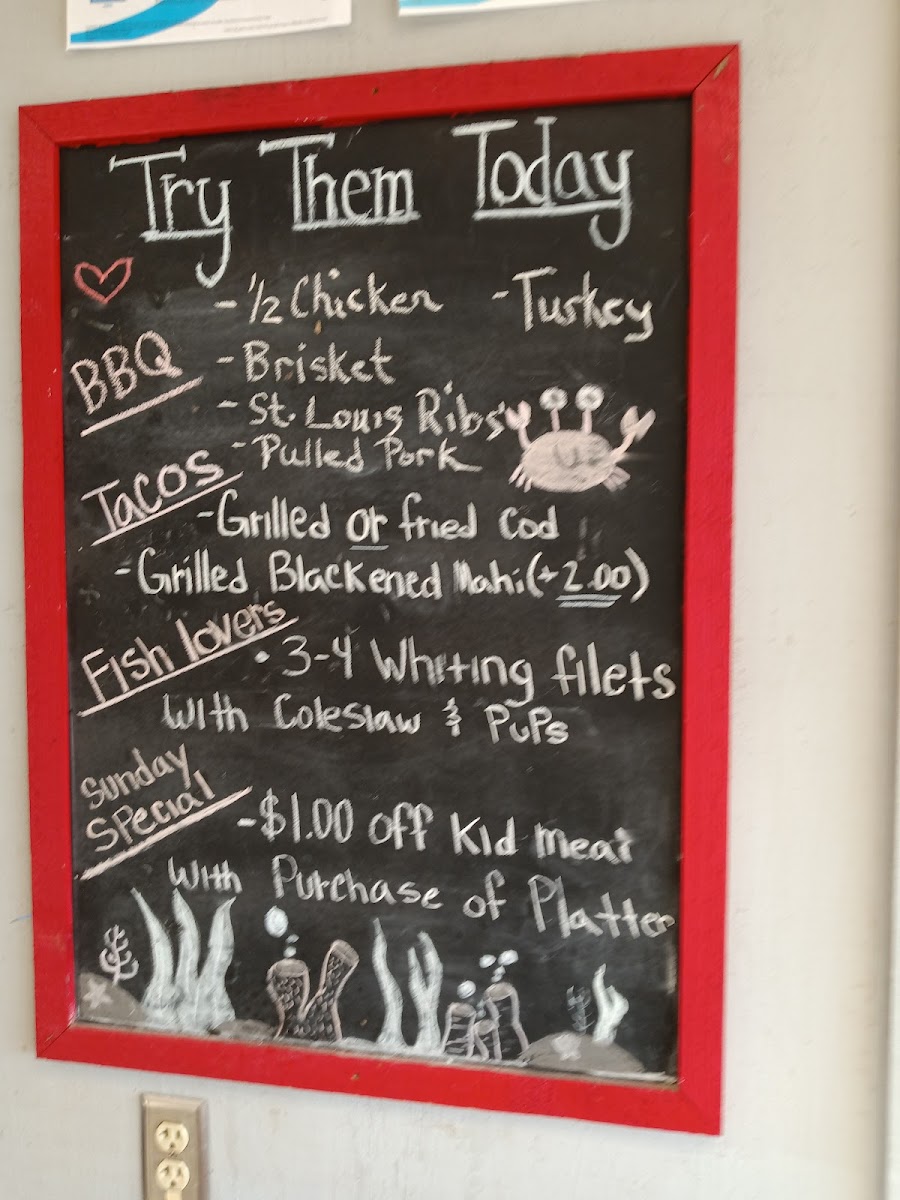 Try Them Today
- 1/2 Chicken - Turkey
BBQ
- Brisket
- St. Louis Ribs
- Pulled Pork
Tacos
- Grilled or fried Cod
- Grilled Blackened Mahi (+2.00)
Fish lovers
• 3-4 Whiting filets
With Coleslaw & Pups
Sunday
Special
- $1.00 off Kid meal
With Purchase of Platter